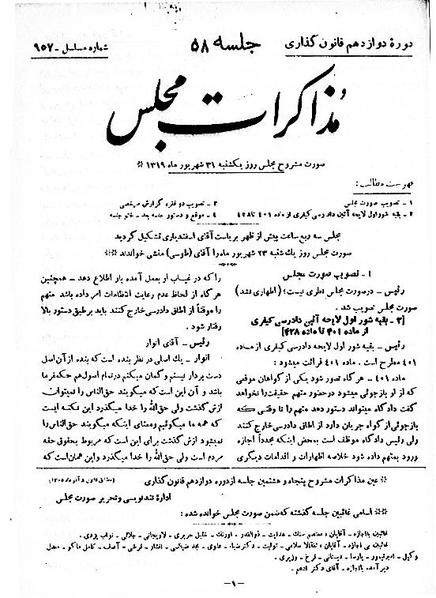 دورهٔ دوازدهم قانون گذاری
جلسه ۵۸
شماره مسلسل - ۹۵۷
مذاکرات مجلس
صورت مشروح مجلس روز یکشنبه ۳۱ شهریور ماه ۱۳۱۹
فهرست مطالب:
۱ - تصویب صورت مجلس
۲ - بقیه شور اول لایحه آئین دادرسی کیفری از ماده ۴۰۱ تا ۴۲۸
۳ - تصویب دو فقره گزارش مرخصی
۴ - موقع و دستور جلسه بعد - ختم جلسه
مجلس سه ربع ساعت پیش از ظهر بریاست آقای اسفندیاری تشکیل گردید
صورت مجلس روز یکشنبه ۲۴ شهریور ماه را آقای (طوسی) منشی خواندند
۱ - تصویب صورت مجلس
رئیس - در صورت مجلس نظری نیست؟ (اظهاری نشد)
صورت مجلس تصویب شد.
[۲ - بقیه شور اول لایحه آئین دادرسی کیفری
از ماده ۴۰۱ تا ماده ۴۲۸]
رئیس - بقیه شور اول لایحه دادرسی کیفری از ماده
۴۰۱ مطرح است. ماده ۴۰۱ قرائت میشود:
ماده ۴۰۱ - هر گاه تصور شود یکی از گواهان موقعی
که از او بازجوئی میشود در حضور متهم حقیقت را نخواهد
گفت دادگاه میتواند دستور دهد متهم را تا وقتی که
بازجوئی از گواه جریان دارد از اطاق دادرسی خارج کنند
ولی رئیس دادگاه موظف است به محض اینکه مجدداً اجازه
ورود بمتهم داده شود خلاصه اظهارات و اقدامات دیگری
را که در غیاب او بعمل آمده باو اطلاع دهد - همچنین
هر گاه از لحاظ عدم رعایت انتظامات امر داده باشد متهم
را موقتاً از اطاق دادرسی خارج کنند باید بر طبق دستور بالا
رفتار شود.
رئیس - آقای انوار
انوار - یک اصلی در نظر بنده است که بنده از آن اصل
دست بردار نیستم و گمان میکنم در تمام اصول هم حکمفرما
باشد و آن این است که میگویند حق الناس را نمیتوان
ازش گذشت ولی حق الله را خدا میگذرد این نکته ایست
که همه ما میگوئیم و معنای اینکه میگویند حق الناس را
نمیشود ازش گذشت برای این است که مربوط بحقوق حقه
مردم است ولی حق الله را خدا میگذرد و این همان است که
عین مذاکرات مشروح پنجاه و هشتمین جلسه از دوره دوازدهم قانون گذاری
اداره تند نویسی و تحریر صورت مجلس
اسامی غائبین جلسه گذشته که ضمن صورت مجلس خوانده شده:
- ۱ -